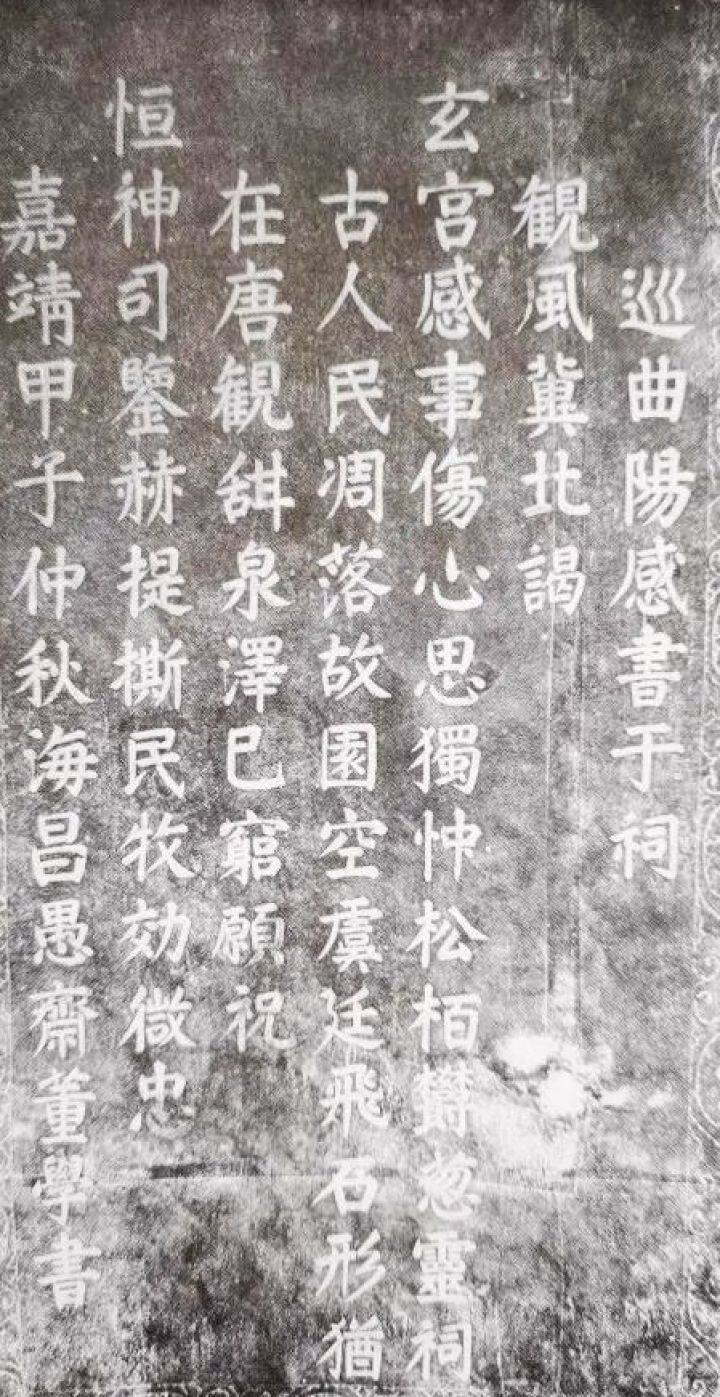 巡曲陽感書于祠
観風冀北謁
玄宫感事傷心思獨忡松栢欝葱靈祠
古人民凋落故園空虞廷飛石形猶
在唐観甜泉澤巳窮願祝
恒神司鑒赫提撕民牧効微忠
嘉靖甲子仲秋海昌愚齋董學書